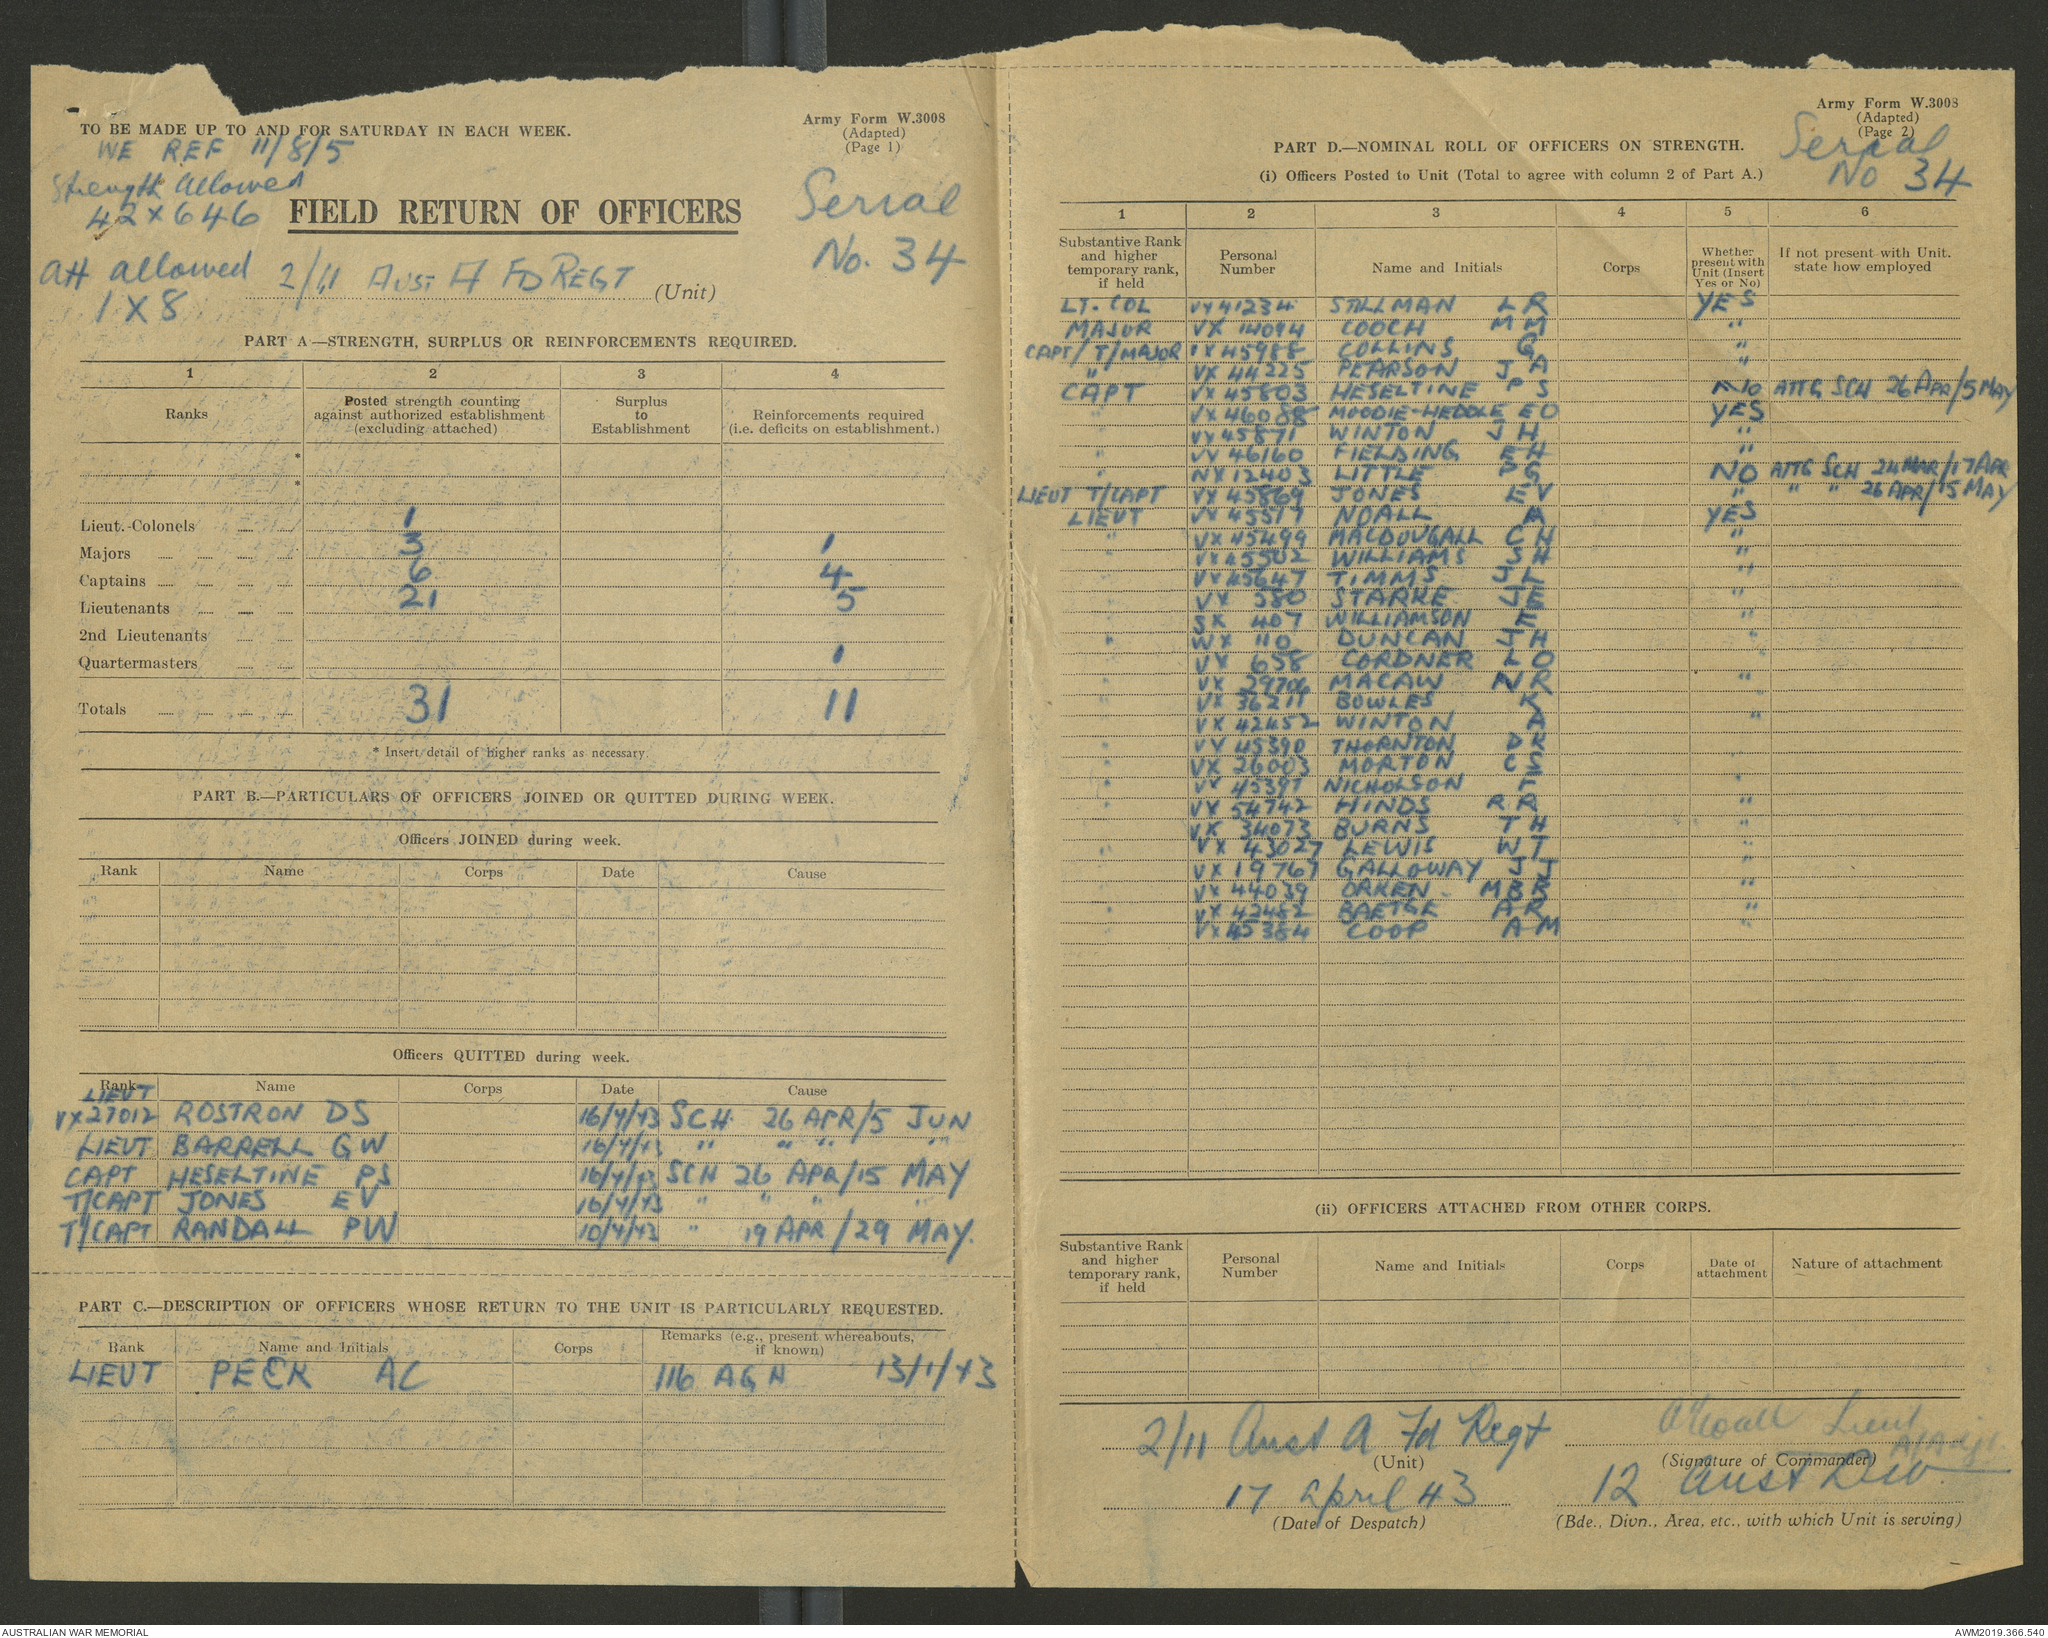 TO BE MADE UP TO AND FOR SATURDAY IN EACH WEEK.
Army Form W.3008
(Adapted)
(Page 1)
WE REF 11/8/5
Strength Allowed
42 x 646
Serial
No. 34
FIELD RETURN OF OFFICERS
Att allowed
1 X 8
2/11 AUST A FD REGT (Unit)
PART A—STRENGTH, SURPLUS OR REINFORCEMENTS REQUIRED.
1 2 3 4
Ranks Posted strength counting against authorized establishment (excluding attached) Surplus to Establishment Reinforcements required (i.e. deficits on establishment.)
*
*
Lieut.-Colonels 1
Majors 3 1
Captains 6 4
Lieutenants 21 5
2nd Lieutenants
Quartermasters 1
Totals 31 11
* Insert detail of higher ranks as necessary.
PART B.—PARTICULARS OF OFFICERS JOINED OR QUITTED DURING WEEK.
Officers JOINED during week.
Rank Name Corps Date Cause
Officers QUITTED during week.
Rank Name Corps Date Cause
LIEUT
VX27012 ROSTRON DS 16/4/43 SCH 26 APR/5 JUN
LIEUT BARRELL GW 16/4/43 " " " "
CAPT HESELTINE PS 16/4/43 SCH 26 APR/15 MAY
T/CAPT JONES EV 16/4/43 " " " "
T/CAPT RANDALL PW 10/4/43 " 19 APR/29 MAY.
PART C.—DESCRIPTION OF OFFICERS WHOSE RETURN TO THE UNIT IS PARTICULARLY REQUESTED.
Rank Name and Initials Corps Remarks (e.g., present whereabouts, if known)
LIEUT PECK AC 116 AGH 13/1/43
Army Form W.3008
(Adapted)
(Page 2)
Serial
No 34
PART D.—NOMINAL ROLL OF OFFICERS ON STRENGTH.
(i) Officers Posted to Unit (Total to agree with column 2 of Part A.)
1 2 3 4 5 6
Substantive Rank and higher temporary rank, if held Personal Number Name and Initials Corps Whether present with Unit (Insert Yes or No) If not present with Unit. state how employed
LT. COL VX41234 STILLMAN LR YES
MAJOR VX 14094 COOCH MM "
CAPT/T/MAJOR VX45988 COLLINS G "
" VX 44225 PEARSON JA "
CAPT VX45803 HESELTINE PS NO ATTG SCH 26 APR/5 MAY
" VX46088 MOODIE-HEDDLE EO YES
" VX45871 WINTON JH "
" VX 46160 FIELDING EH "
" NX12403 LITTLE PG NO ATTG SCH 24 MAR/17 APR
LIEUT T/CAPT VX 45869 JONES EV " " " 26 APR/15 MAY
LIEUT VX 45519 NOALL A YES
" VX45499 MACDOUGALL CH "
VX45502 WILLIAMS SH "
VX45647 TIMMS JL "
VX 580 STARKE JE
SX 407 WILLIAMSON F "
" WX 110 DUNCAN JH "
" VX 658 CORDNER LO "
" VX 29706 MACAW NR "
VX 36211 BOWLES K
" VX 42452 WINTON A "
" VX 45390 THORNTON DR
" VX 26003 MORTON CS
" VX 45397 NICHOLSON F "
" VX 54742 HINDS RA "
" VX 34073 BURNS TH "
" VX 43027 LEWIS WT "
" VX 19767 GALLOWAY JJ "
" VX 44039 ORKEN MBR "
" VX 42482 BAETGE AR "
" VX45384 COOP AM "
(ii) OFFICERS ATTACHED FROM OTHER CORPS.
Substantive Rank and higher temporary rank, if held Personal Number Name and Initials Corps Date of attachment Nature of attachment
2/11 Aust A Fd Regt
(Unit)
A Noall Lieut
(Signature of Commander)
17 April 43
(Date of Despatch)
12 Aust Div
(Bde., Divn., Area, etc., with which Unit is serving)
AUSTRALIAN WAR MEMORIAL
AWM2019.366.540